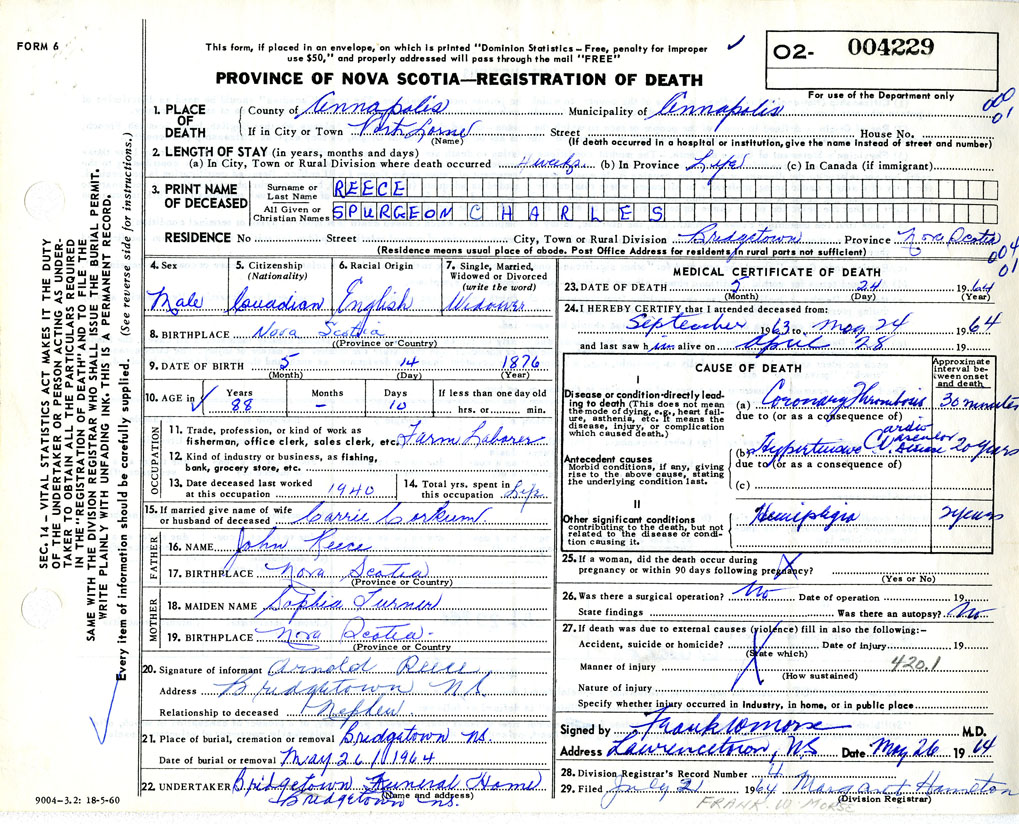 FORM 6
This form, if placed in an envelope, on which is printed "Dominion Statistics – Free, penalty for improper
use $50," and properly addressed will pass through the mail "FREE"
02- 004229
For use of the Department only
PROVINCE OF NOVA SCOTIA—REGISTRATION OF DEATH
SEC. 14 – VITAL STATISTICS ACT MAKES IT THE DUTY
OF THE UNDERTAKER OR PERSON ACTING AS UNDER-
TAKER TO OBTAIN ALL THE PARTICULARS REQUIRED
IN THE "REGISTRATION OF DEATH" AND TO FILE THE
SAME WITH THE DIVISION REGISTRAR WHO SHALL ISSUE THE BURIAL PERMIT.
WRITE PLAINLY WITH UNFADING INK. THIS IS A PERMANENT RECORD.
Every item of information should be carefully supplied. (See reverse side for instructions.)
1. PLACE OF DEATH County of Annapolis Municipality of Annapolis
000
01
If in City or Town Port Lorne Street House No.
(Name) (If death occurred in a hospital or institution, give the name instead of street and number)
2. LENGTH OF STAY (in years, months and days)
(a) In City, Town or Rural Division where death occurred 4 weeks (b) In Province Life (c) In Canada (if immigrant)
3. PRINT NAME OF DECEASED
Surname or Last Name REECE
All Given or Christian Names SPURGEON CHARLES
RESIDENCE No Street City, Town or Rural Division Bridgetown Province Nova Scotia
(Residence means usual place of abode. Post Office Address for residents in rural parts not sufficient)
004
01
4. Sex 5. Citizenship (Nationality) 6. Racial Origin 7. Single, Married, Widowed or Divorced (write the word)
Male Canadian English Widower
8. BIRTHPLACE Nova Scotia
(Province or Country)
9. DATE OF BIRTH 5 14 1876
(Month) (Day) (Year)
10. AGE in Years Months Days If less than one day old
88 – 10 hrs. or min.
OCCUPATION
11. Trade, profession, or kind of work as
fisherman, office clerk, sales clerk, etc. Farm Laborer
12. Kind of industry or business, as fishing,
bank, grocery store, etc.
13. Date deceased last worked
at this occupation 1940
14. Total yrs. spent in
this occupation Life
15. If married give name of wife
or husband of deceased Carrie Corkum
FATHER
16. NAME John Reece
17. BIRTHPLACE Nova Scotia
(Province or Country)
MOTHER
18. MAIDEN NAME Sophia Turner
19. BIRTHPLACE Nova Scotia
(Province or Country)
20. Signature of informant Arnold Reece
Address Bridgetown NS
Relationship to deceased Nephew
21. Place of burial, cremation or removal Bridgetown NS.
Date of burial or removal May 26 1964
22. UNDERTAKER Bridgetown Funeral Home
(Name and address)
Bridgetown NS.
9004-3.2: 18-5-60
MEDICAL CERTIFICATE OF DEATH
23. DATE OF DEATH 5 24 1964
(Month) (Day) (Year)
24. I HEREBY CERTIFY that I attended deceased from:
September 1963 to May 24 1964
and last saw him alive on April 28 19
CAUSE OF DEATH
Approximate interval between onset and death
I
Disease or condition directly lead-
ing to death (This does not mean
the mode of dying, e.g., heart fail-
ure, asthenia, etc. It means the
disease, injury, or complication
which caused death.)
(a) Coronary Thrombosis 30 minutes
due to (or as a consequence of)
Antecedent causes
Morbid conditions, if any, giving
rise to the above cause, stating
the underlying condition last.
(b) Hypertensive Cardio Disease 20 years
due to (or as a consequence of)
(c)
II
Other significant conditions
contributing to the death, but not
related to the disease or condi-
tion causing it.
Hemiplegia 2 years
25. If a woman, did the death occur during
pregnancy or within 90 days following pregnancy?
(Yes or No)
26. Was there a surgical operation? No Date of operation 19
State findings Was there an autopsy? No
27. If death was due to external causes (violence) fill in also the following:–
Accident, suicide or homicide? Date of injury 19
(State which)
Manner of injury 420.1
(How sustained)
Nature of injury
Specify whether injury occurred in Industry, in home, or in public place
Signed by Frank W Morse M.D.
Address Lawrencetown, NS Date May 26 1964
28. Division Registrar's Record Number 4
29. Filed July 2 1964 Margaret Hamilton
(Division Registrar)
FRANK W MORSE